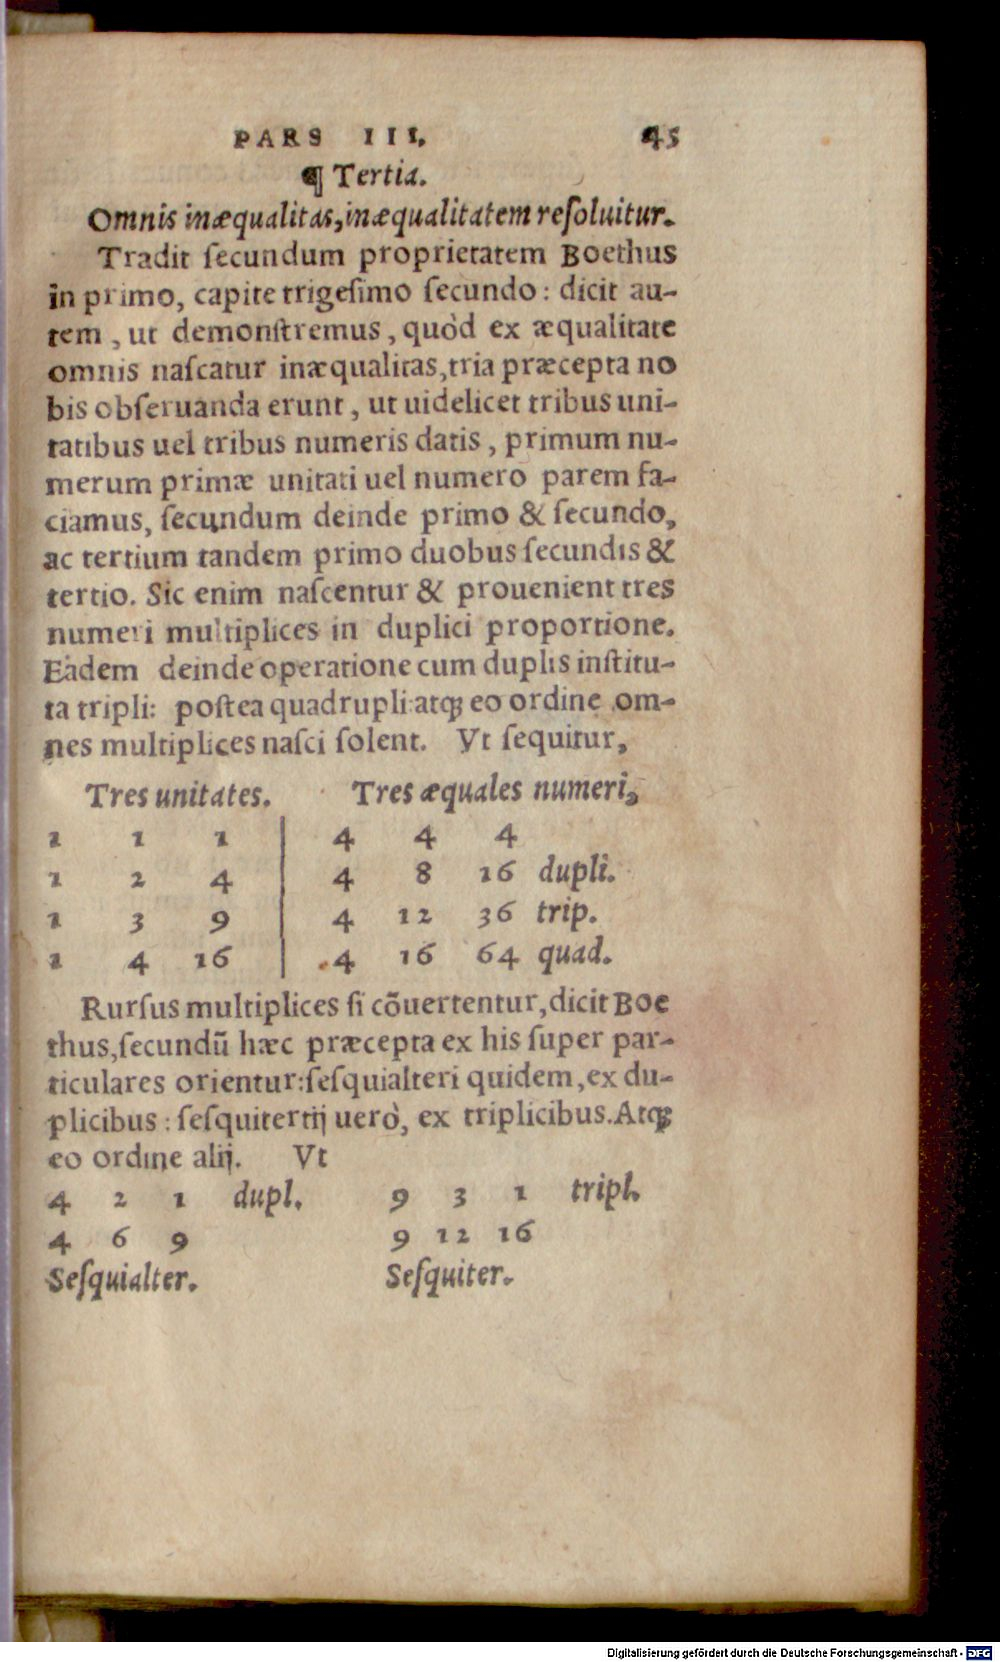 PARS III. 45
¶ Tertia.
Omnis inæqualitas, inæqualitatem reſoluitur.
Tradit ſecundum proprietatem Boethus
in primo, capite trigeſimo ſecundo: dicit au-
tem, ut demonſtremus, quòd ex æqualitate
omnis naſcatur inæqualitas, tria præcepta no
bis obſeruanda erunt, ut uidelicet tribus uni-
tatibus uel tribus numeris datis, primum nu-
merum primæ unitati uel numero parem fa-
ciamus, ſecundum deinde primo & ſecundo,
ac tertium tandem primo duobus ſecundis &
tertio. Sic enim naſcentur & prouenient tres
numeri multiplices in duplici proportione.
Eadem deinde operatione cum duplis inſtitu-
ta tripli: poſtea quadrupli: atq; eo ordine om-
nes multiplices naſci ſolent. Vt ſequitur,
Tres unitates. Tres æquales numeri,
1 1 1 | 4 4 4
1 2 4 | 4 8 16 dupli.
1 3 9 | 4 12 36 trip.
1 4 16 | 4 16 64 quad.
Rurſus multiplices ſi cõuertentur, dicit Boe
thus, ſecundũ hæc præcepta ex his ſuper par-
ticulares orientur: ſeſquialteri quidem, ex du-
plicibus: ſeſquitertij uerò, ex triplicibus. Atq;
eo ordine alij. Vt
4 2 1 dupl. 9 3 1 tripl.
4 6 9 9 12 16
Seſquialter. Seſquiter.
Digitalisierung gefördert durch die Deutsche Forschungsgemeinschaft - DFG